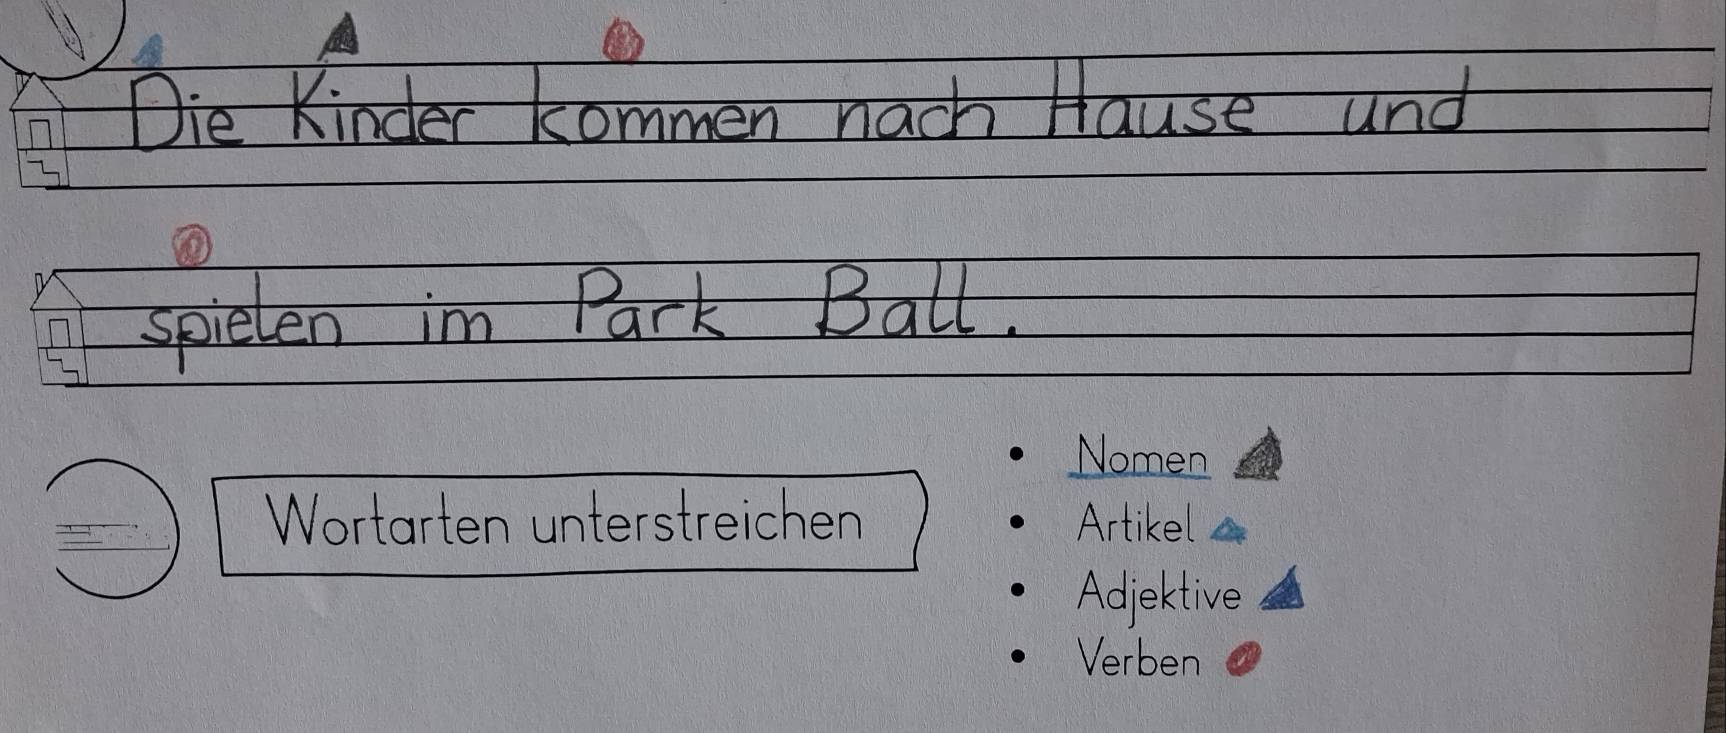 Die Kinder kommen nach Hause und
spielen im Park Ball.
Wortarten unterstreichen
• Nomen
• Artikel
• Adjektive
• Verben